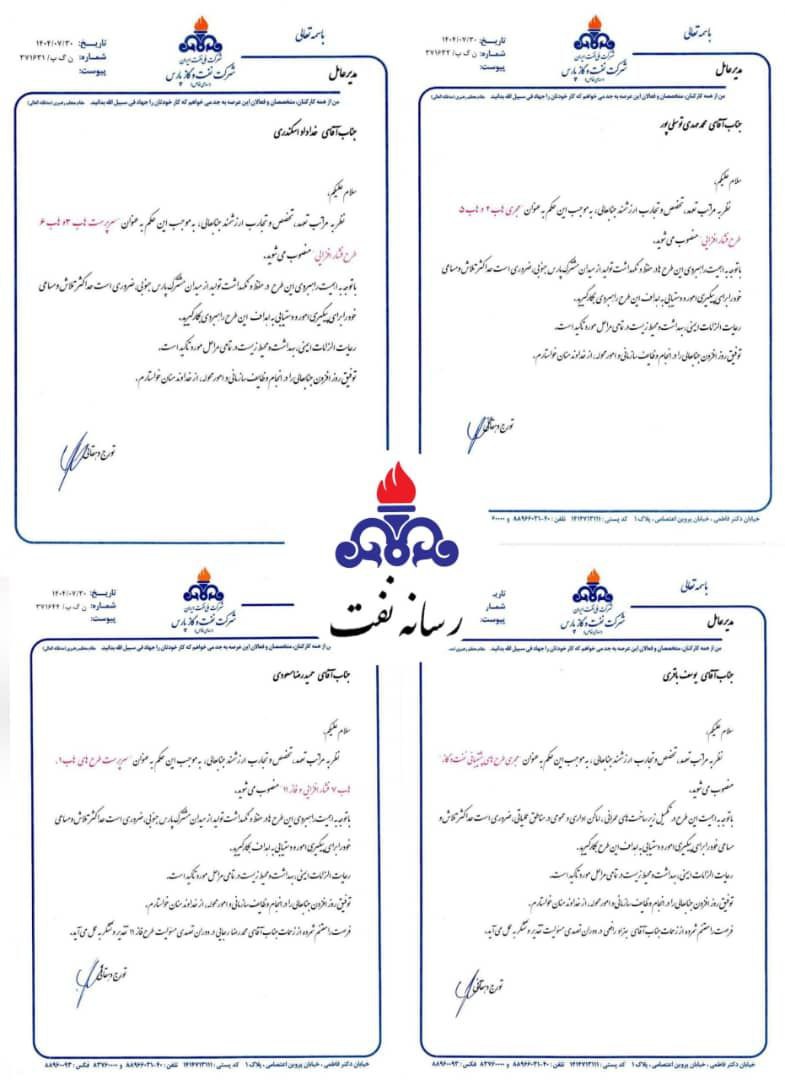 باسمه تعالی
شرکت ملی نفت ایران
شرکت نفت و گاز پارس
(سهامی خاص)
تاریخ: ۱۴۰۴/۰۷/۳۰
شماره: ن گ پ/ ۳۷۱۶۳۲
پیوست:
مدیرعامل
من از همه کارکنان، متخصصان و فعالان این عرصه به جد می خواهم که کار خودتان را جهاد فی سبیل الله بدانید. مقام معظم رهبری (مدظله العالی)
جناب آقای محمد مهدی توسلی پور
سلام علیکم،
نظر به مراتب تعهد، تخصص و تجارب ارزشمند جنابعالی، به موجب این حکم به عنوان "مجری هاب ۲ و هاب ۵
طرح فشار افزایی" منصوب می شوید.
با توجه به اهمیت راهبردی این طرح ها در حفظ و نگهداشت تولید از میدان مشترک پارس جنوبی، ضروری است حداکثر تلاش و مساعی
خود را برای پیگیری امور و دستیابی به اهداف این طرح راهبردی بکار گیرید.
رعایت الزامات ایمنی، بهداشت و محیط زیست در تمامی مراحل مورد تاکید است.
توفیق روز افزون جنابعالی را در انجام وظایف سازمانی و امور محوله، از خداوند منان خواستارم.
تورج دهقانی
خیابان دکتر فاطمی، خیابان پروین اعتصامی، پلاک ۱ کد پستی: ۱۴۱۴۷۱۳۱۱۱ تلفن: ۴۰-۸۸۹۶۶۰۳۱ و ۶۰۰۰۰
باسمه تعالی
شرکت ملی نفت ایران
شرکت نفت و گاز پارس
(سهامی خاص)
تاریخ: ۱۴۰۴/۰۷/۳۰
شماره: ن گ پ/ ۳۷۱۶۳۱
پیوست:
مدیرعامل
من از همه کارکنان، متخصصان و فعالان این عرصه به جد می خواهم که کار خودتان را جهاد فی سبیل الله بدانید. مقام معظم رهبری (مدظله العالی)
جناب آقای خداداد اسکندری
سلام علیکم،
نظر به مراتب تعهد، تخصص و تجارب ارزشمند جنابعالی، به موجب این حکم به عنوان "سرپرست هاب ۳ و هاب ۶
طرح فشار افزایی" منصوب می شوید.
با توجه به اهمیت راهبردی این طرح در حفظ و نگهداشت تولید از میدان مشترک پارس جنوبی، ضروری است حداکثر تلاش و مساعی
خود را برای پیگیری امور و دستیابی به اهداف این طرح راهبردی بکار گیرید.
رعایت الزامات ایمنی، بهداشت و محیط زیست در تمامی مراحل مورد تاکید است.
توفیق روز افزون جنابعالی را در انجام وظایف سازمانی و امور محوله، از خداوند منان خواستارم.
تورج دهقانی
رسانه نفت
باسمه تعالی
شرکت ملی نفت ایران
شرکت نفت و گاز پارس
(سهامی خاص)
شمار
پیوست:
مدیرعامل
من از همه کارکنان، متخصصان و فعالان این عرصه به جد می خواهم که کار خودتان را جهاد فی سبیل الله بدانید. مقام معظم رهبری (مدظله
جناب آقای یوسف باقری
سلام علیکم،
نظر به مراتب تعهد، تخصص و تجارب ارزشمند جنابعالی، به موجب این حکم به عنوان "مجری طرح های پشتیبانی نفت و گاز"
منصوب می شوید.
با توجه به اهمیت این طرح در تکمیل زیرساخت های عمرانی، اماکن اداری و عمومی در مناطق عملیاتی، ضروری است حداکثر تلاش و
مساعی خود را برای پیگیری امور و دستیابی به اهداف این طرح بکار گیرید.
رعایت الزامات ایمنی، بهداشت و محیط زیست در تمامی مراحل مورد تاکید است.
توفیق روز افزون جنابعالی را در انجام وظایف سازمانی و امور محوله، از خداوند منان خواستارم.
فرصت را مغتنم شمرده از زحمات جناب آقای بهزاد رافعی در دوران تصدی مسئولیت تقدیر و تشکر به عمل می آید.
تورج دهقانی
خیابان دکتر فاطمی، خیابان پروین اعتصامی، پلاک ۱ کد پستی: ۱۴۱۴۷۱۳۱۱۱ تلفن: ۴۰-۸۸۹۶۶۰۳۱ و ۸۳۷۶۰۰۰۰ فکس: ۸۸۹۶۰۰۹۳
شرکت ملی نفت ایران
شرکت نفت و گاز پارس
(سهامی خاص)
تاریخ: ۱۴۰۴/۰۷/۳۰
شماره: ن گ پ/ ۳۷۱۶۴۴
پیوست:
ن از همه کارکنان، متخصصان و فعالان این عرصه به جد می خواهم که کار خودتان را جهاد فی سبیل الله بدانید. مقام معظم رهبری (مدظله العالی)
جناب آقای حمیدرضا مسعودی
سلام علیکم،
نظر به مراتب تعهد، تخصص و تجارب ارزشمند جنابعالی، به موجب این حکم به عنوان "سرپرست طرح های هاب ۱،
هاب ۷ فشار افزایی و فاز ۱۱" منصوب می شوید.
با توجه به اهمیت راهبردی این طرح ها در حفظ و نگهداشت تولید از میدان مشترک پارس جنوبی، ضروری است حداکثر تلاش و مساعی
خود را برای پیگیری امور و دستیابی به اهداف بکار گیرید.
رعایت الزامات ایمنی، بهداشت و محیط زیست در تمامی مراحل مورد تاکید است.
توفیق روز افزون جنابعالی را در انجام وظایف سازمانی و امور محوله، از خداوند منان خواستارم.
فرصت را مغتنم شمرده از زحمات جناب آقای محمدرضا رجایی در دوران تصدی مسئولیت طرح فاز ۱۱ تقدیر و تشکر به عمل می آید.
تورج دهقانی
خیابان دکتر فاطمی، خیابان پروین اعتصامی، پلاک ۱ کد پستی: ۱۴۱۴۷۱۳۱۱۱ تلفن: ۴۰-۸۸۹۶۶۰۳۱ و ۸۳۷۶۰۰۰۰ فکس: ۸۸۹۶۰۰۹۳